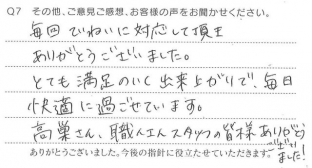 Q7 その他、ご意見ご感想、お客様の声をお聞かせください。
毎回ていねいに対応して頂き
ありがとうございました。
とても満足のいく出来上がりで、毎日
快適に過ごせています。
高巣さん、職人さん スタッフの皆様ありがとう
ございました!
ありがとうございました。今後の指針に役立たせていただきます。